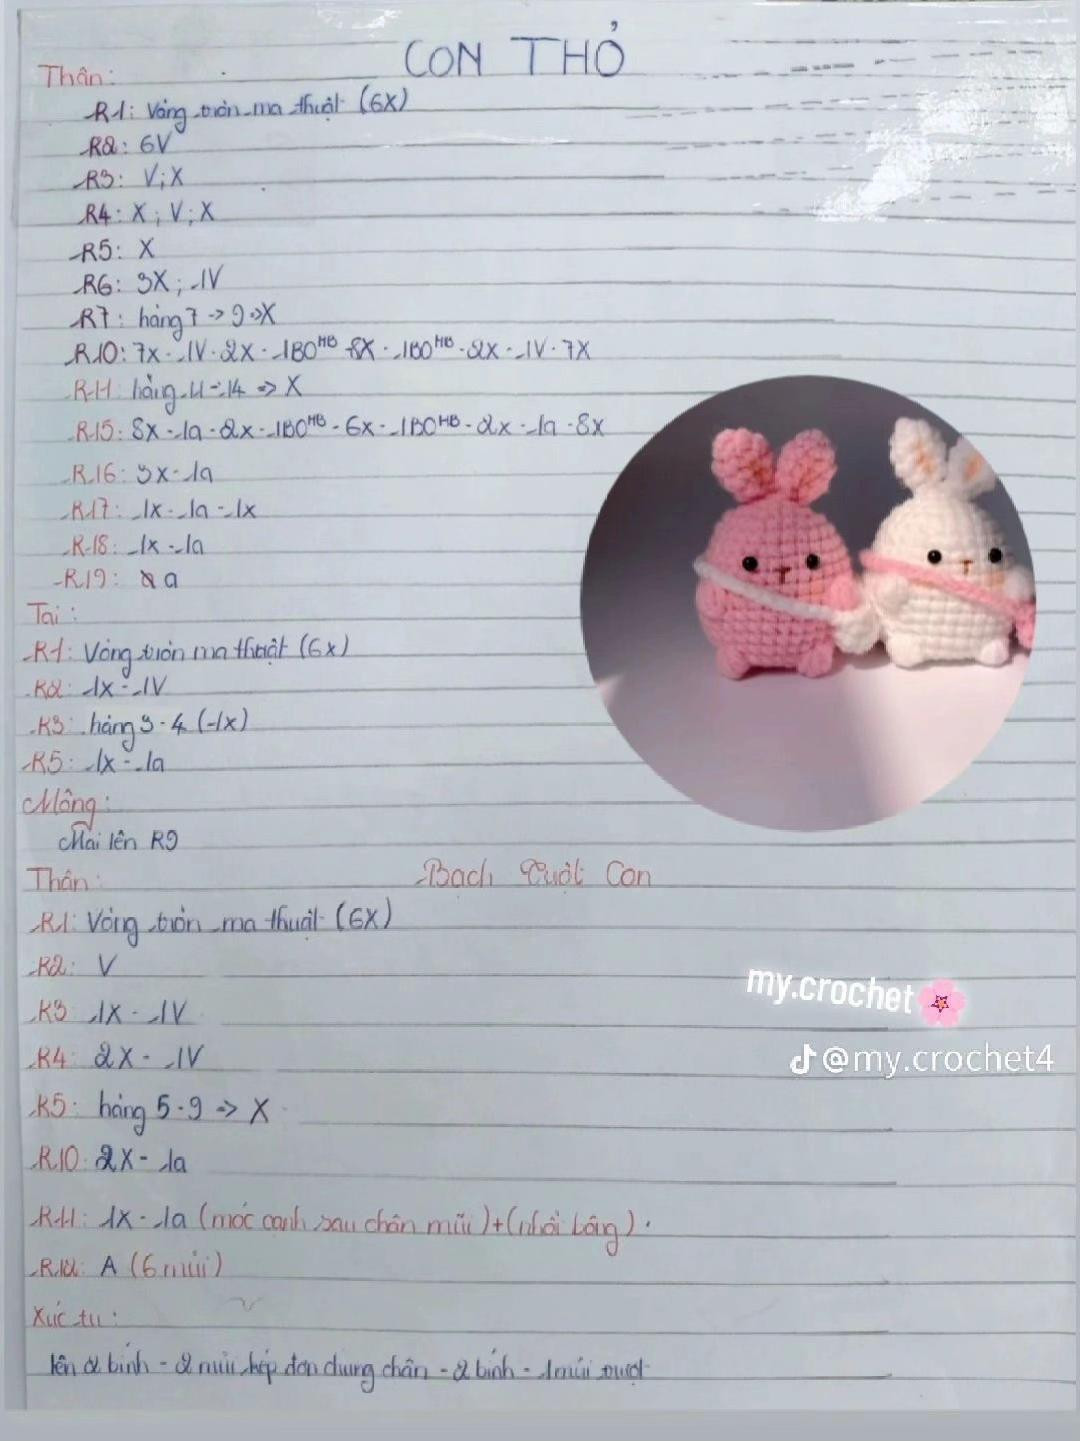 CON THỎ
Thân:
R1: Vòng tròn ma thuật (6X)
R2: 6V
R3: V; X
R4: X; V; X
R5: X
R6: 3X; 1V
R7: hàng 7 -> 9 => X
R10: 7X - 1V - 2X - 1BO^HB - 8X - 1BO^HB - 2X - 1V - 7X
R11: hàng 11 - 14 => X
R15: 8X - 1a - 2x - 1BO^HB - 6x - 1BO^HB - 2x - 1a - 8x
R16: 3x - 1a
R17: 1x - 1a - 1x
R18: 1x - 1a
R19: a
Tai:
R1: Vòng tròn ma thuật (6x)
R2: 1x - 1V
R3: hàng 3 - 4 (1x)
R5: 1x - 1a
Mông:
Mai lên R9
Bạch Tuột Con
Thân:
R1: Vòng tròn ma thuật (6X)
R2: V
R3: 1X - 1V
R4: 2X - 1V
R5: hàng 5 - 9 => X
R10: 2X - 1a
R11: 1X - 1a (móc cạnh sau chân mũi) + (nhồi bông).
R12: A (6 mũi)
Xúc tu:
lên 2 bính - 2 mũi kép đơn chung chân - 2 bính - 1 mũi trượt
my.crochet
@my.crochet4